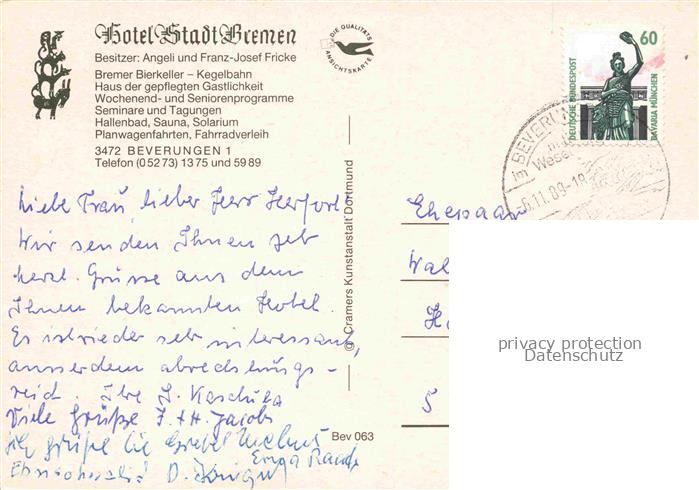 Hotel Stadt Bremen
Besitzer: Angeli und Franz-Josef Fricke
Bremer Bierkeller – Kegelbahn
Haus der gepflegten Gastlichkeit
Wochenend- und Seniorenprogramme
Seminare und Tagungen
Hallenbad, Sauna, Solarium
Planwagenfahrten, Fahrradverleih
3472 BEVERUNGEN 1
Telefon (0 52 73) 13 75 und 59 89
DIE QUALITÄTS
ANSICHTSKARTE
60
DEUTSCHE BUNDESPOST
BAVARIA MÜNCHEN
im
Weser
6.11.89-18
Liebe Frau, lieber Herr
Wir senden Ihnen
herzl. Grüsse aus dem
Ihnen bekannten Hotel.
Es ist wieder sehr interessant,
ausserdem abwechslungs-
reich. Ihre
Viele Grüße J. + H. Jacobs
Ehepaar
5
© Cramers Kunstanstalt Dortmund
Bev 063
privacy protection
Datenschutz